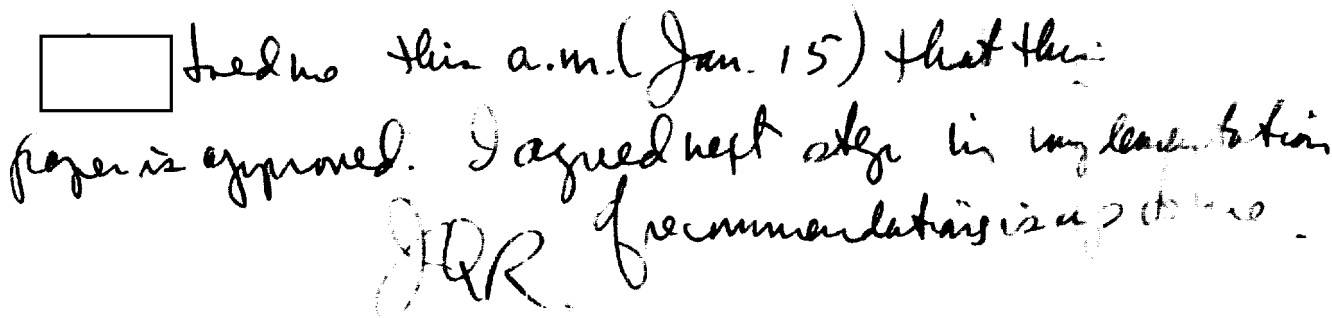 told me this a.m. (Jan. 15) that this
paper is approved. I agreed next step in implementation
of recommendations is up to me.
JQR.